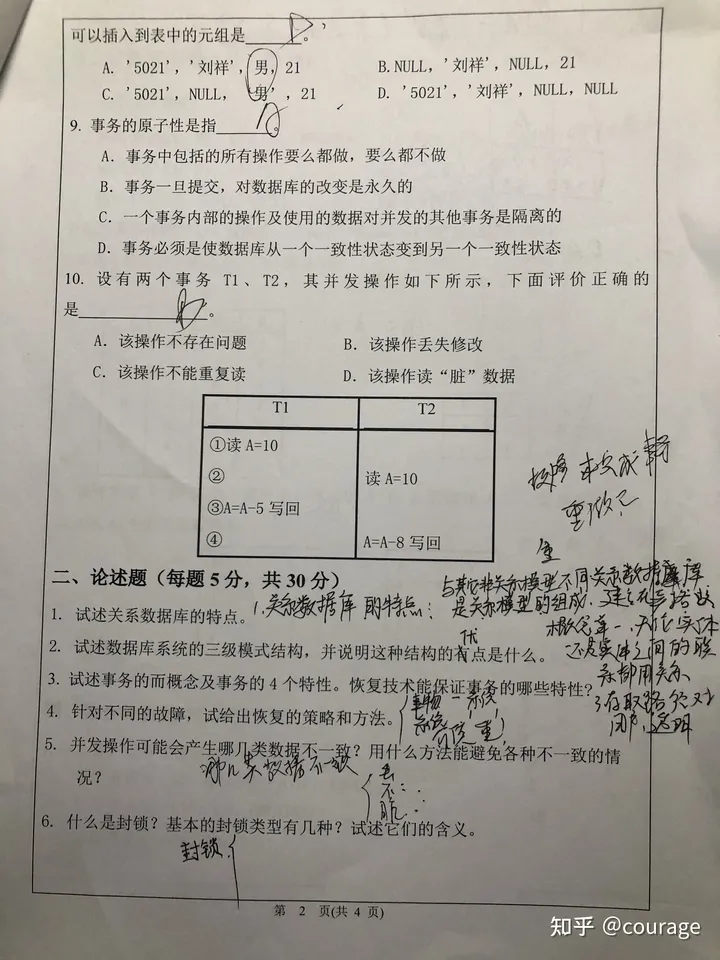 可以插入到表中的元组是____D____。
A. '5021', '刘祥', 男, 21 B.NULL, '刘祥', NULL, 21
C. '5021', NULL, '男', 21 D. '5021', '刘祥', NULL, NULL
9. 事务的原子性是指____A____。
A. 事务中包括的所有操作要么都做，要么都不做
B. 事务一旦提交，对数据库的改变是永久的
C. 一个事务内部的操作及使用的数据对并发的其他事务是隔离的
D. 事务必须是使数据库从一个一致性状态变到另一个一致性状态
10. 设有两个事务 T1、T2，其并发操作如下所示，下面评价正确的
是____B____。
A. 该操作不存在问题 B. 该操作丢失修改
C. 该操作不能重复读 D. 该操作读“脏”数据
T1 T2
①读 A=10
② 读 A=10
③A=A-5 写回
④ A=A-8 写回
重做
二、论述题（每题 5 分，共 30 分）
与其它非关系模型不同关系数据库
1. 试述关系数据库的特点。 1.关系数据库的特点： 是关系模型的组成，建立在
概念单一，无论实体
2. 试述数据库系统的三级模式结构，并说明这种结构的有点是什么。
优
还是实体之间的联
系都用关系
3. 试述事务的而概念及事务的 4 个特性。恢复技术能保证事务的哪些特性？
存取路径对
用户透明
4. 针对不同的故障，试给出恢复的策略和方法。
事物
系统
5. 并发操作可能会产生哪几类数据不一致？用什么方法能避免各种不一致的情
况？
哪几类数据不一致
丢
不
脏
6. 什么是封锁？基本的封锁类型有几种？试述它们的含义。
封锁
第 2 页(共 4 页)
知乎 @courage